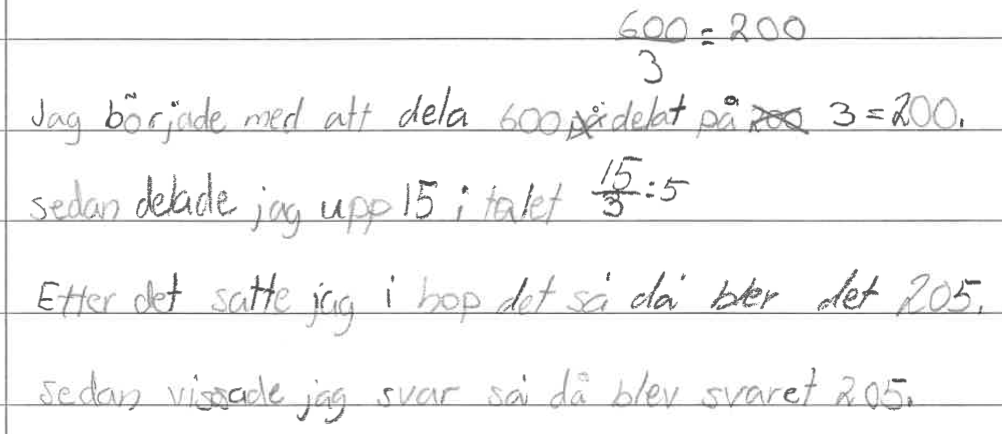 600/3 = 200
Jag började med att dela 600 delat på 3 = 200.
sedan delade jag upp 15 i talet 15/3 = 5
Etter det satte jag i hop det så då bler det 205.
sedan vissade jag svar så då blev svaret 205.